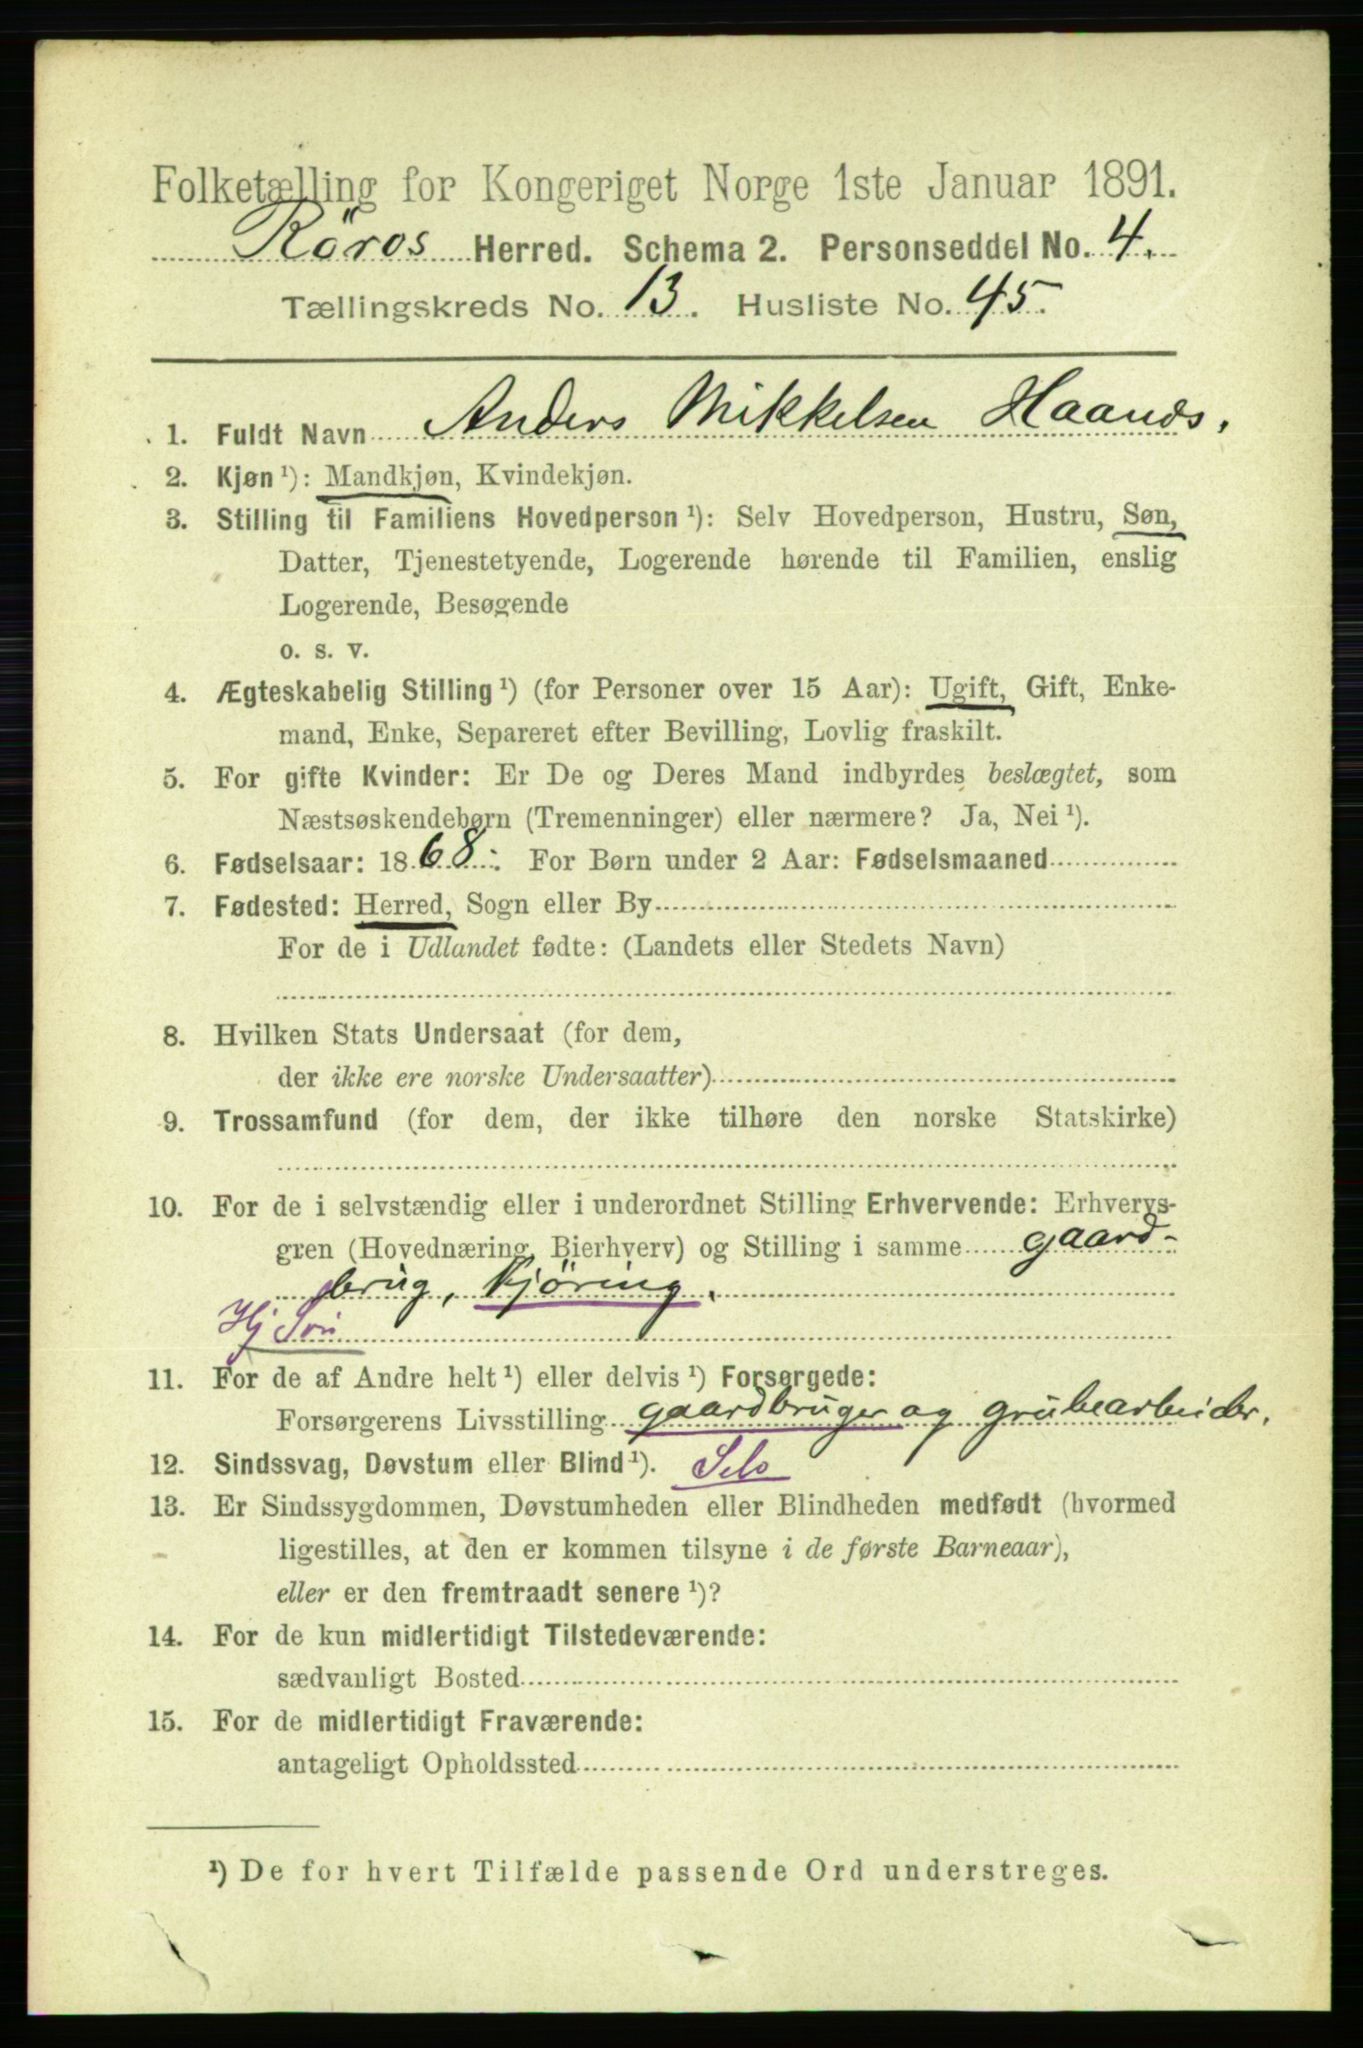 Folketælling for Kongeriget Norge 1ste Januar 1891.
Röros Herred. Schema 2. Personseddel No. 4.
Tællingskreds No. 13. Husliste No. 45.
1. Fuldt Navn Anders Mikkelsen Haanæs.
2. Kjøn ¹): Mandkjøn, Kvindekjøn.
3. Stilling til Familiens Hovedperson ¹): Selv Hovedperson, Hustru, Søn,
Datter, Tjenestetyende, Logerende hørende til Familien, enslig
Logerende, Besøgende
o. s. v.
4. Ægteskabelig Stilling ¹) (for Personer over 15 Aar): Ugift, Gift, Enke-
mand, Enke, Separeret efter Bevilling, Lovlig fraskilt.
5. For gifte Kvinder: Er De og Deres Mand indbyrdes beslægtet, som
Næstsøskendebørn (Tremenninger) eller nærmere? Ja, Nei ¹).
6. Fødselsaar: 1868. For Børn under 2 Aar: Fødselsmaaned
7. Fødested: Herred, Sogn eller By
For de i Udlandet fødte: (Landets eller Stedets Navn)
8. Hvilken Stats Undersaat (for dem,
der ikke ere norske Undersaatter)
9. Trossamfund (for dem, der ikke tilhøre den norske Statskirke)
10. For de i selvstændig eller i underordnet Stilling Erhvervende: Erhvervs-
gren (Hovednæring, Bierhverv) og Stilling i samme gaard-
brug, kjöring.
Hj Søn
11. For de af Andre helt ¹) eller delvis ¹) Forsørgede:
Forsørgerens Livsstilling gaardbruger og grubearbeider.
12. Sindssvag, Døvstum eller Blind ¹). Selv
13. Er Sindssygdommen, Døvstumheden eller Blindheden medfødt (hvormed
ligestilles, at den er kommen tilsyne i de første Barneaar),
eller er den fremtraadt senere ¹)?
14. For de kun midlertidigt Tilstedeværende:
sædvanligt Bosted
15. For de midlertidigt Fraværende:
antageligt Opholdssted
¹) De for hvert Tilfælde passende Ord understreges.